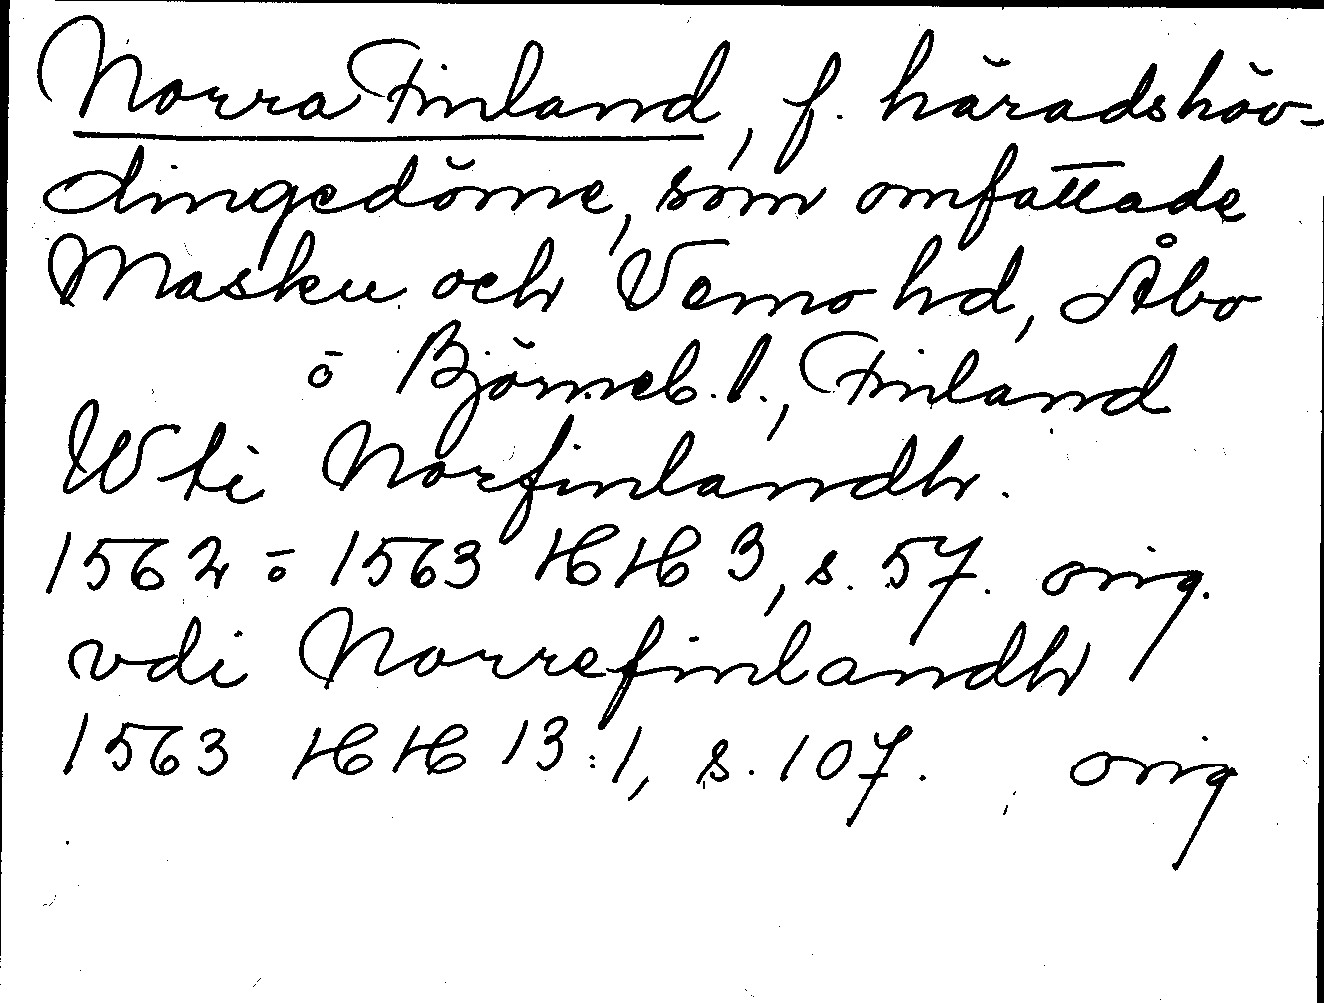 Norra Finland, f. häradshöv-
dingedöme, som omfattade
Masku och Vemo hd, Åbo
o Björneb. l., Finland
Wti Norfinlandh.
1562 o 1563 HH 3, s. 57. orig.
vdi Norrefinlandh
1563 HH 13:1, s. 107. orig